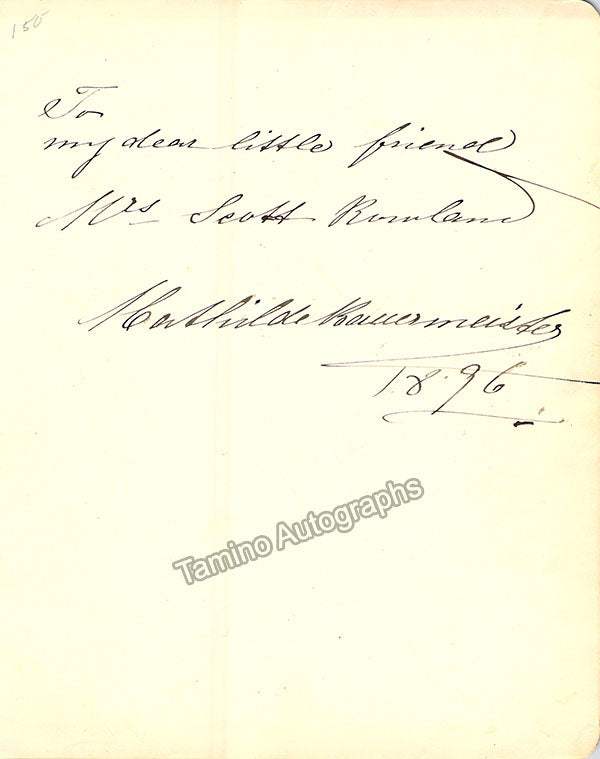 150
To
my dear little friend
Mrs Scott Rowland
Mathilde Bauermeister
1896
Tamino Autographs